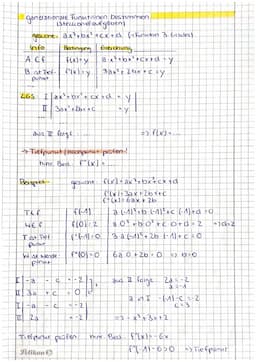 ganzrationale Funktionen bestimmen
(Steckbriefaufgaben)
gesucht: ax³+bx²+cx+d (=Funktion 3. Grades)
Info Bedingung Gleichung
A ∈ f f(x)=y a·x³+bx²+cx+d = y
f'(x)=y 3ax²+2bx+c = y
LGS: I ax³+bx²+cx+d = y
II 3ax²+2bx+c = y
aus II folgt ... => f(x) = ...
→ Tiefpunkt/Hochpunkt prüfen!
hinr. Bed. f''(x) = ...
Beispiel gesucht: f(x) = ax³+bx²+cx+d
f'(x)=3ax²+2bx+c
f''(x)=6ax+2b
f(-1) a(-1)³+b(-1)²+c(-1)+d=0
f(0)=2 a·0³+b·0²+c·0+d=2 =>d=2
f'(-1)=0 3·a(-1)²+2b(-1)+c=0
f''(0)=0 6a·0+2b=0 => b=0
I -a -c = -2
II 3a +c = 0
aus II folgt 2a = -2
a = -1
I -a -c = -2
II 2a = -2
a in I -(-1)-c = -2
c = 3
=> -x³+3x+2
Tiefpunkt prüfen hinr. Bed. f''(x) = -6x
f''(-1)=6>0 =>Tiefpunkt
Pelikan